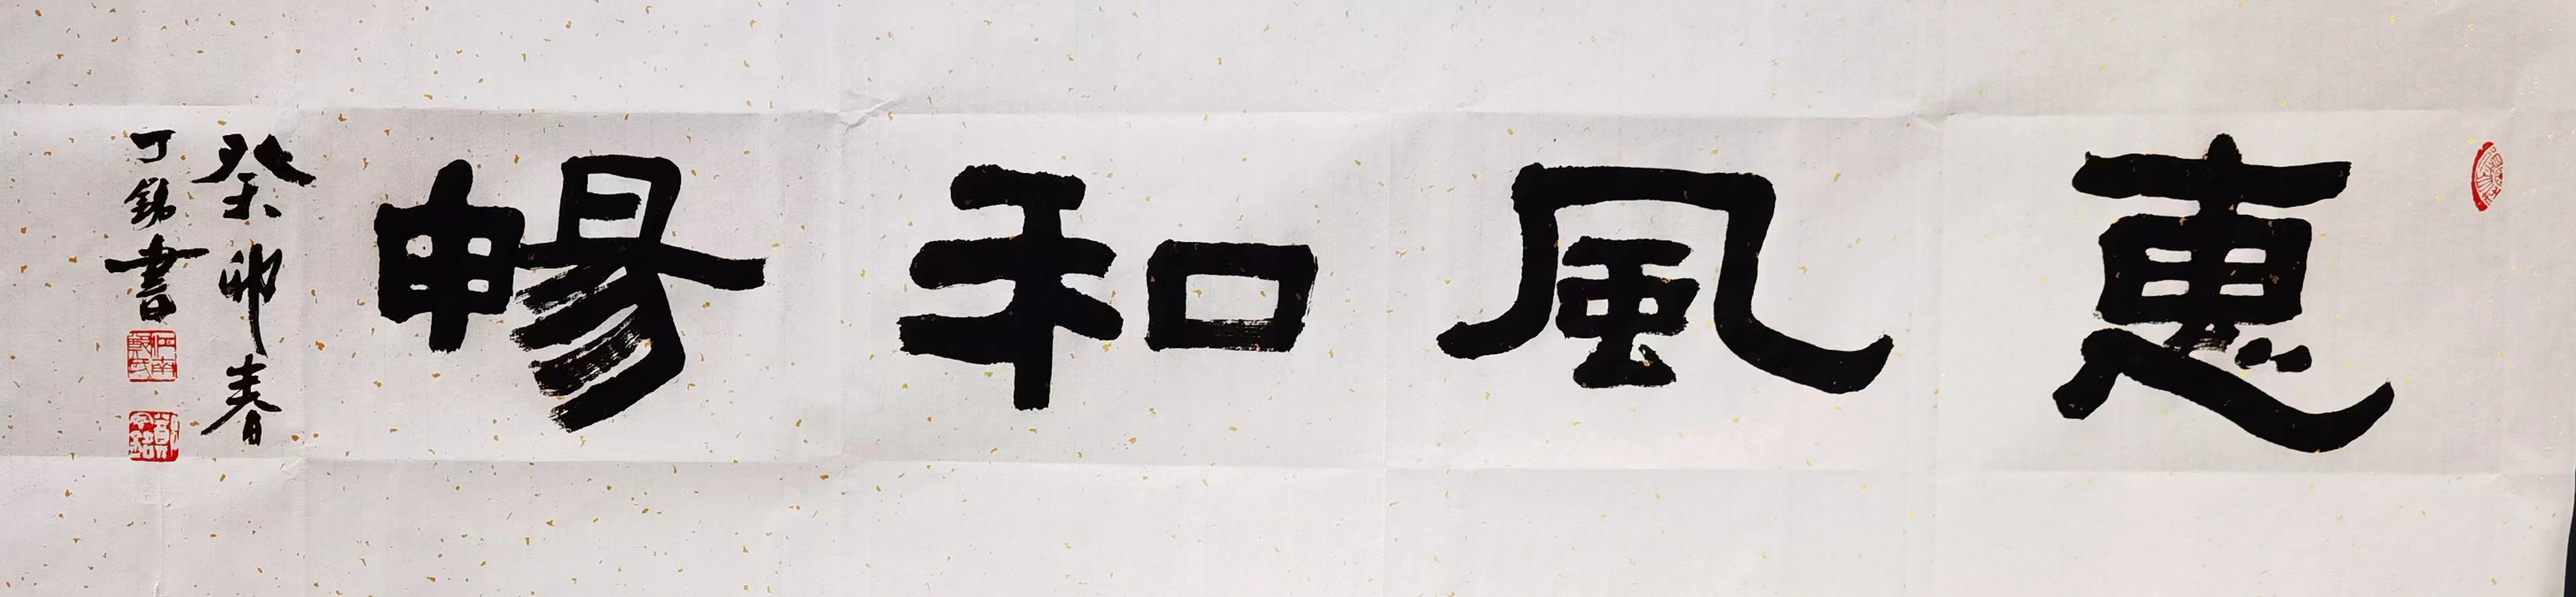 惠風和暢
癸卯春
丁銘書